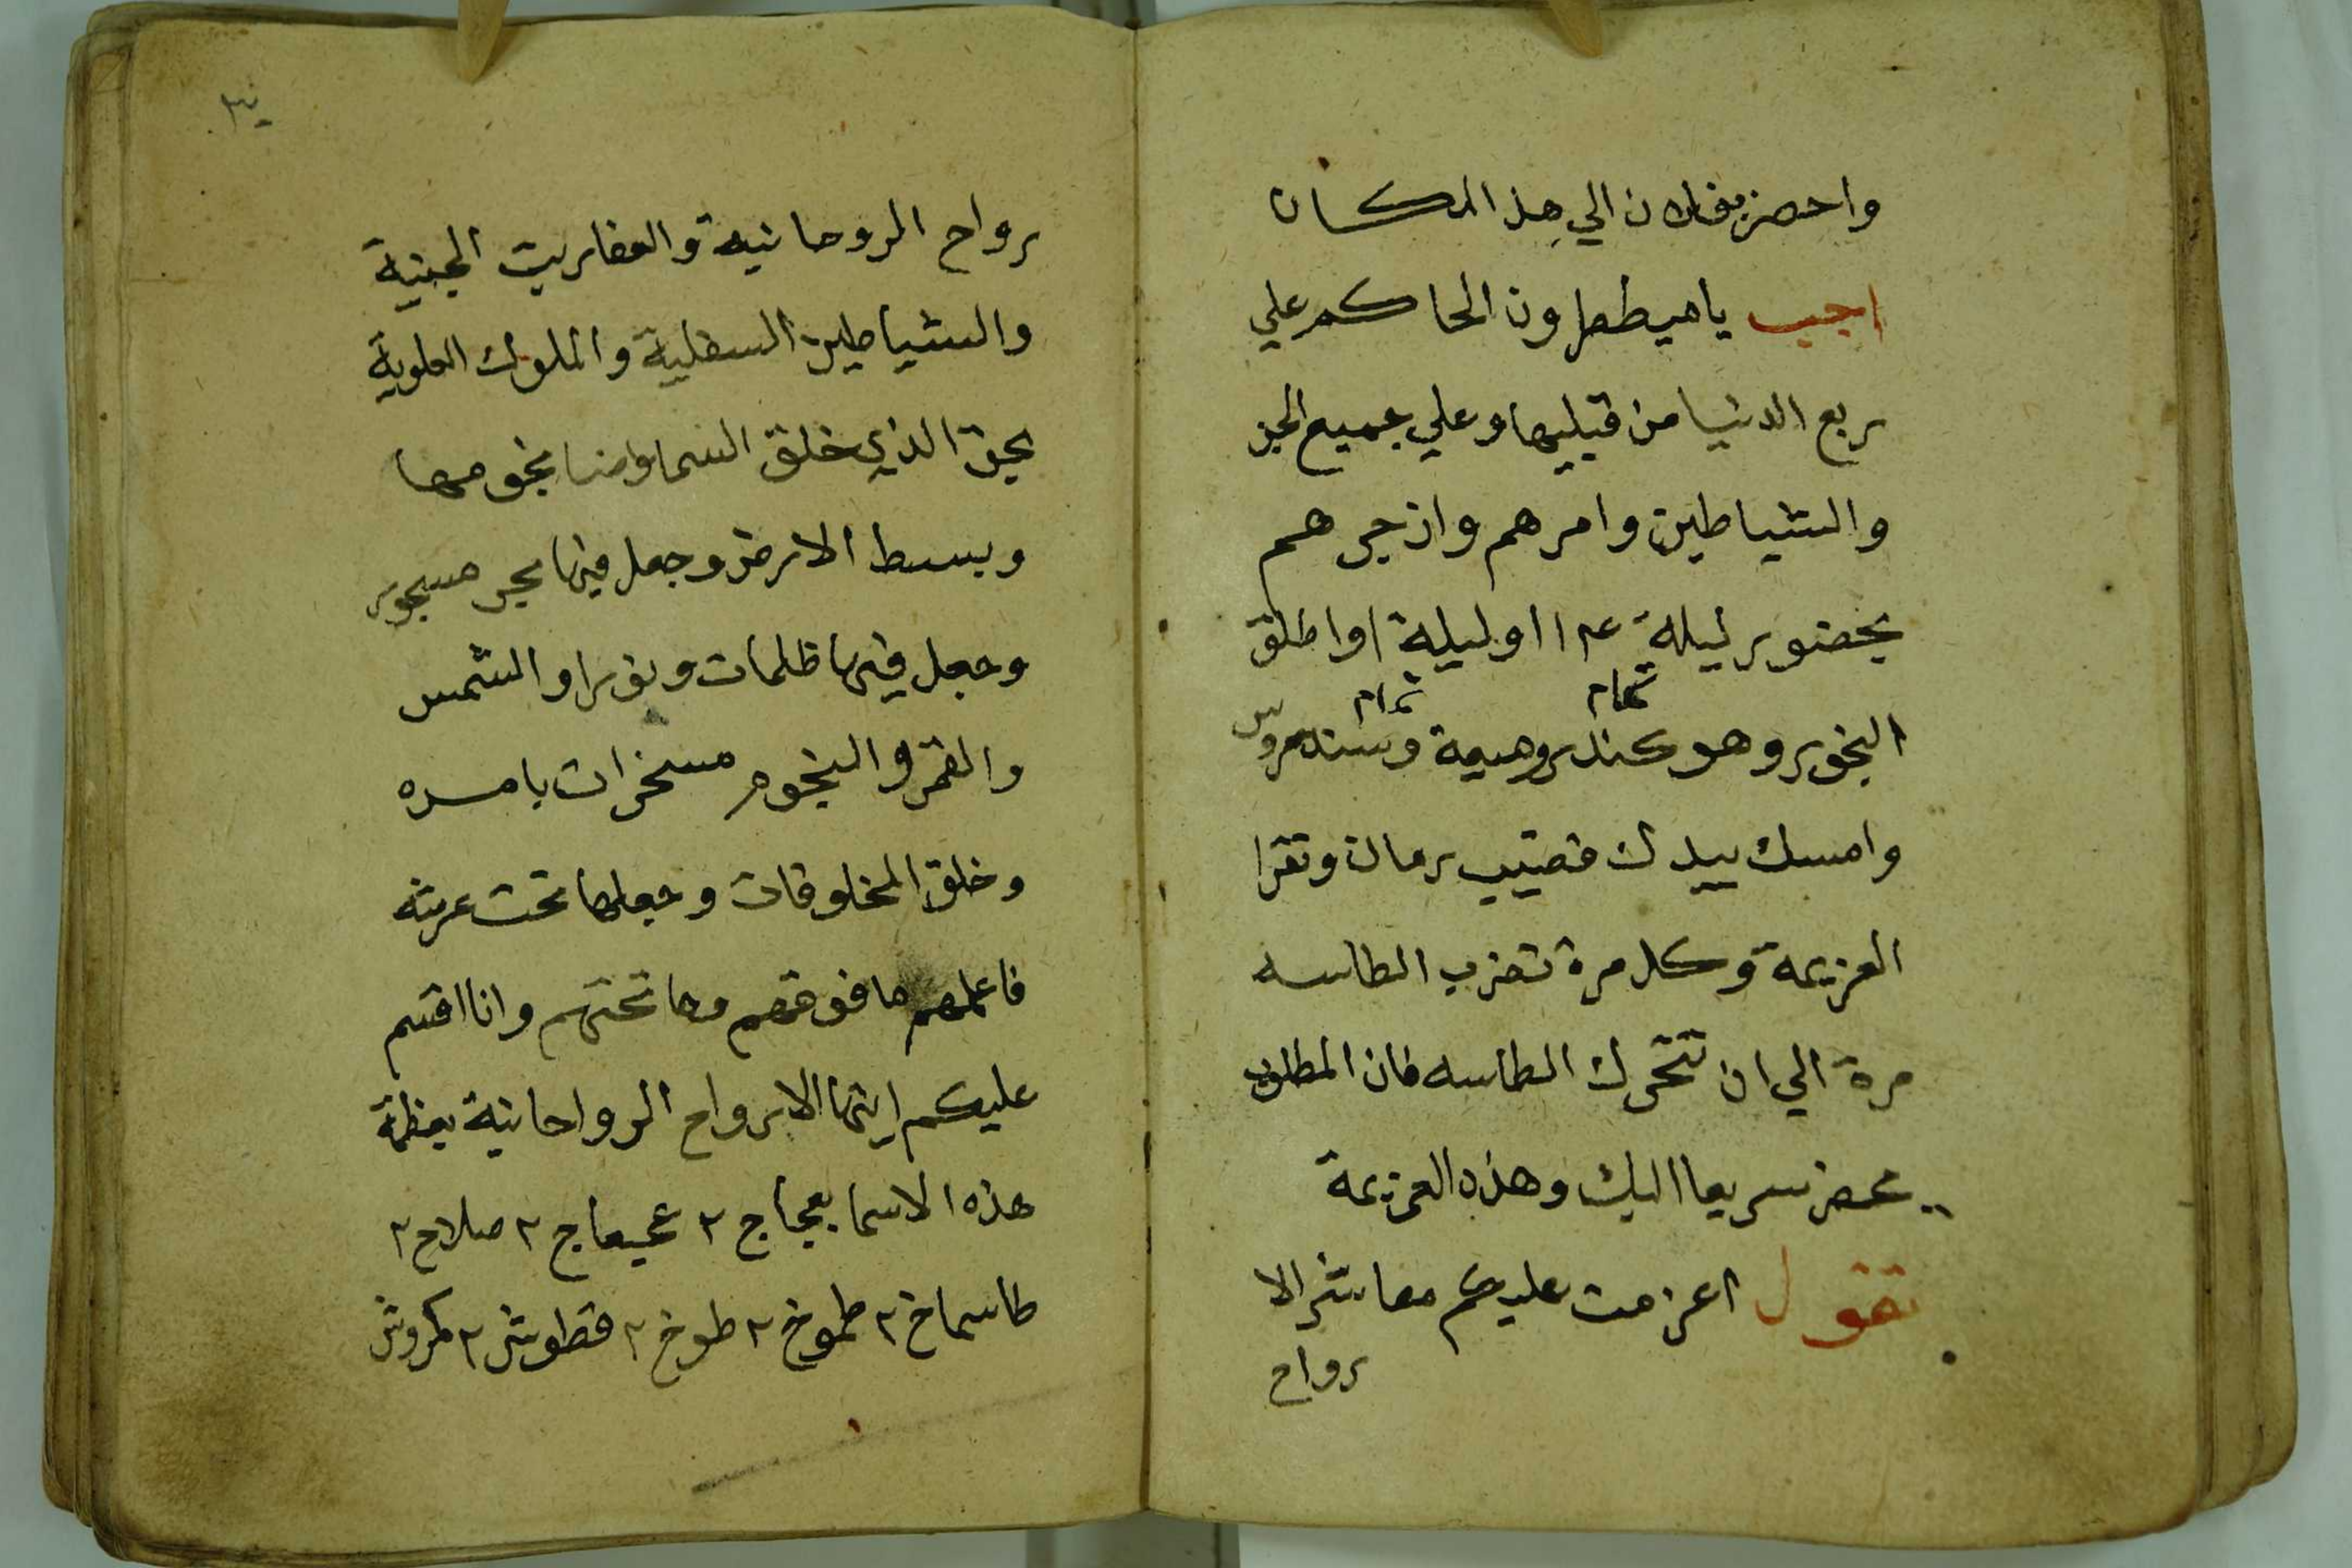 واحضر بفلان الي هذ المكان
اجيب ياميططرون الحاكم علي
ربع الدنيا من قبليها وعلي جميع الجن
والشياطين وامرهم وازجرهم
بحضور ليلة ١٤ اوليلة اواطلق
تمام تمام
البخور وهو كندر وميعة وسندروس
وامسك بيدك قضيب رمان وتقرا
العزيمة وكل مرة تضرب الطاسه
مرة الي ان تتحرك الطاسه فان المطلوب
يحضر سريعا اليك وهذه العزيمة
تقول اعزمت عليكم معاشر الا
رواح
رواح الروحانية والعفاريت الجنية
والشياطين السفلية والملوك العلوية
بحق الذي خلق السما بنجومها
وبسط الارض وجعل فيها بحر مسجور
وجعل فيها ظلمات ونورا والشمس
والقمر والنجوم مسخرات بامره
وخلق المخلوقات وجعلها تحت عرشه
ما فوقهم وما تحتهم وانا اقسم
عليكم ايتها الارواح الرواحانية بعظمة
هذه الاسما بعجاج ٢ عجيعاج ٢ صلاح ٢
طاسماخ ٢ طموخ ٢ طوخ ٢ قطوش ٢ كروش